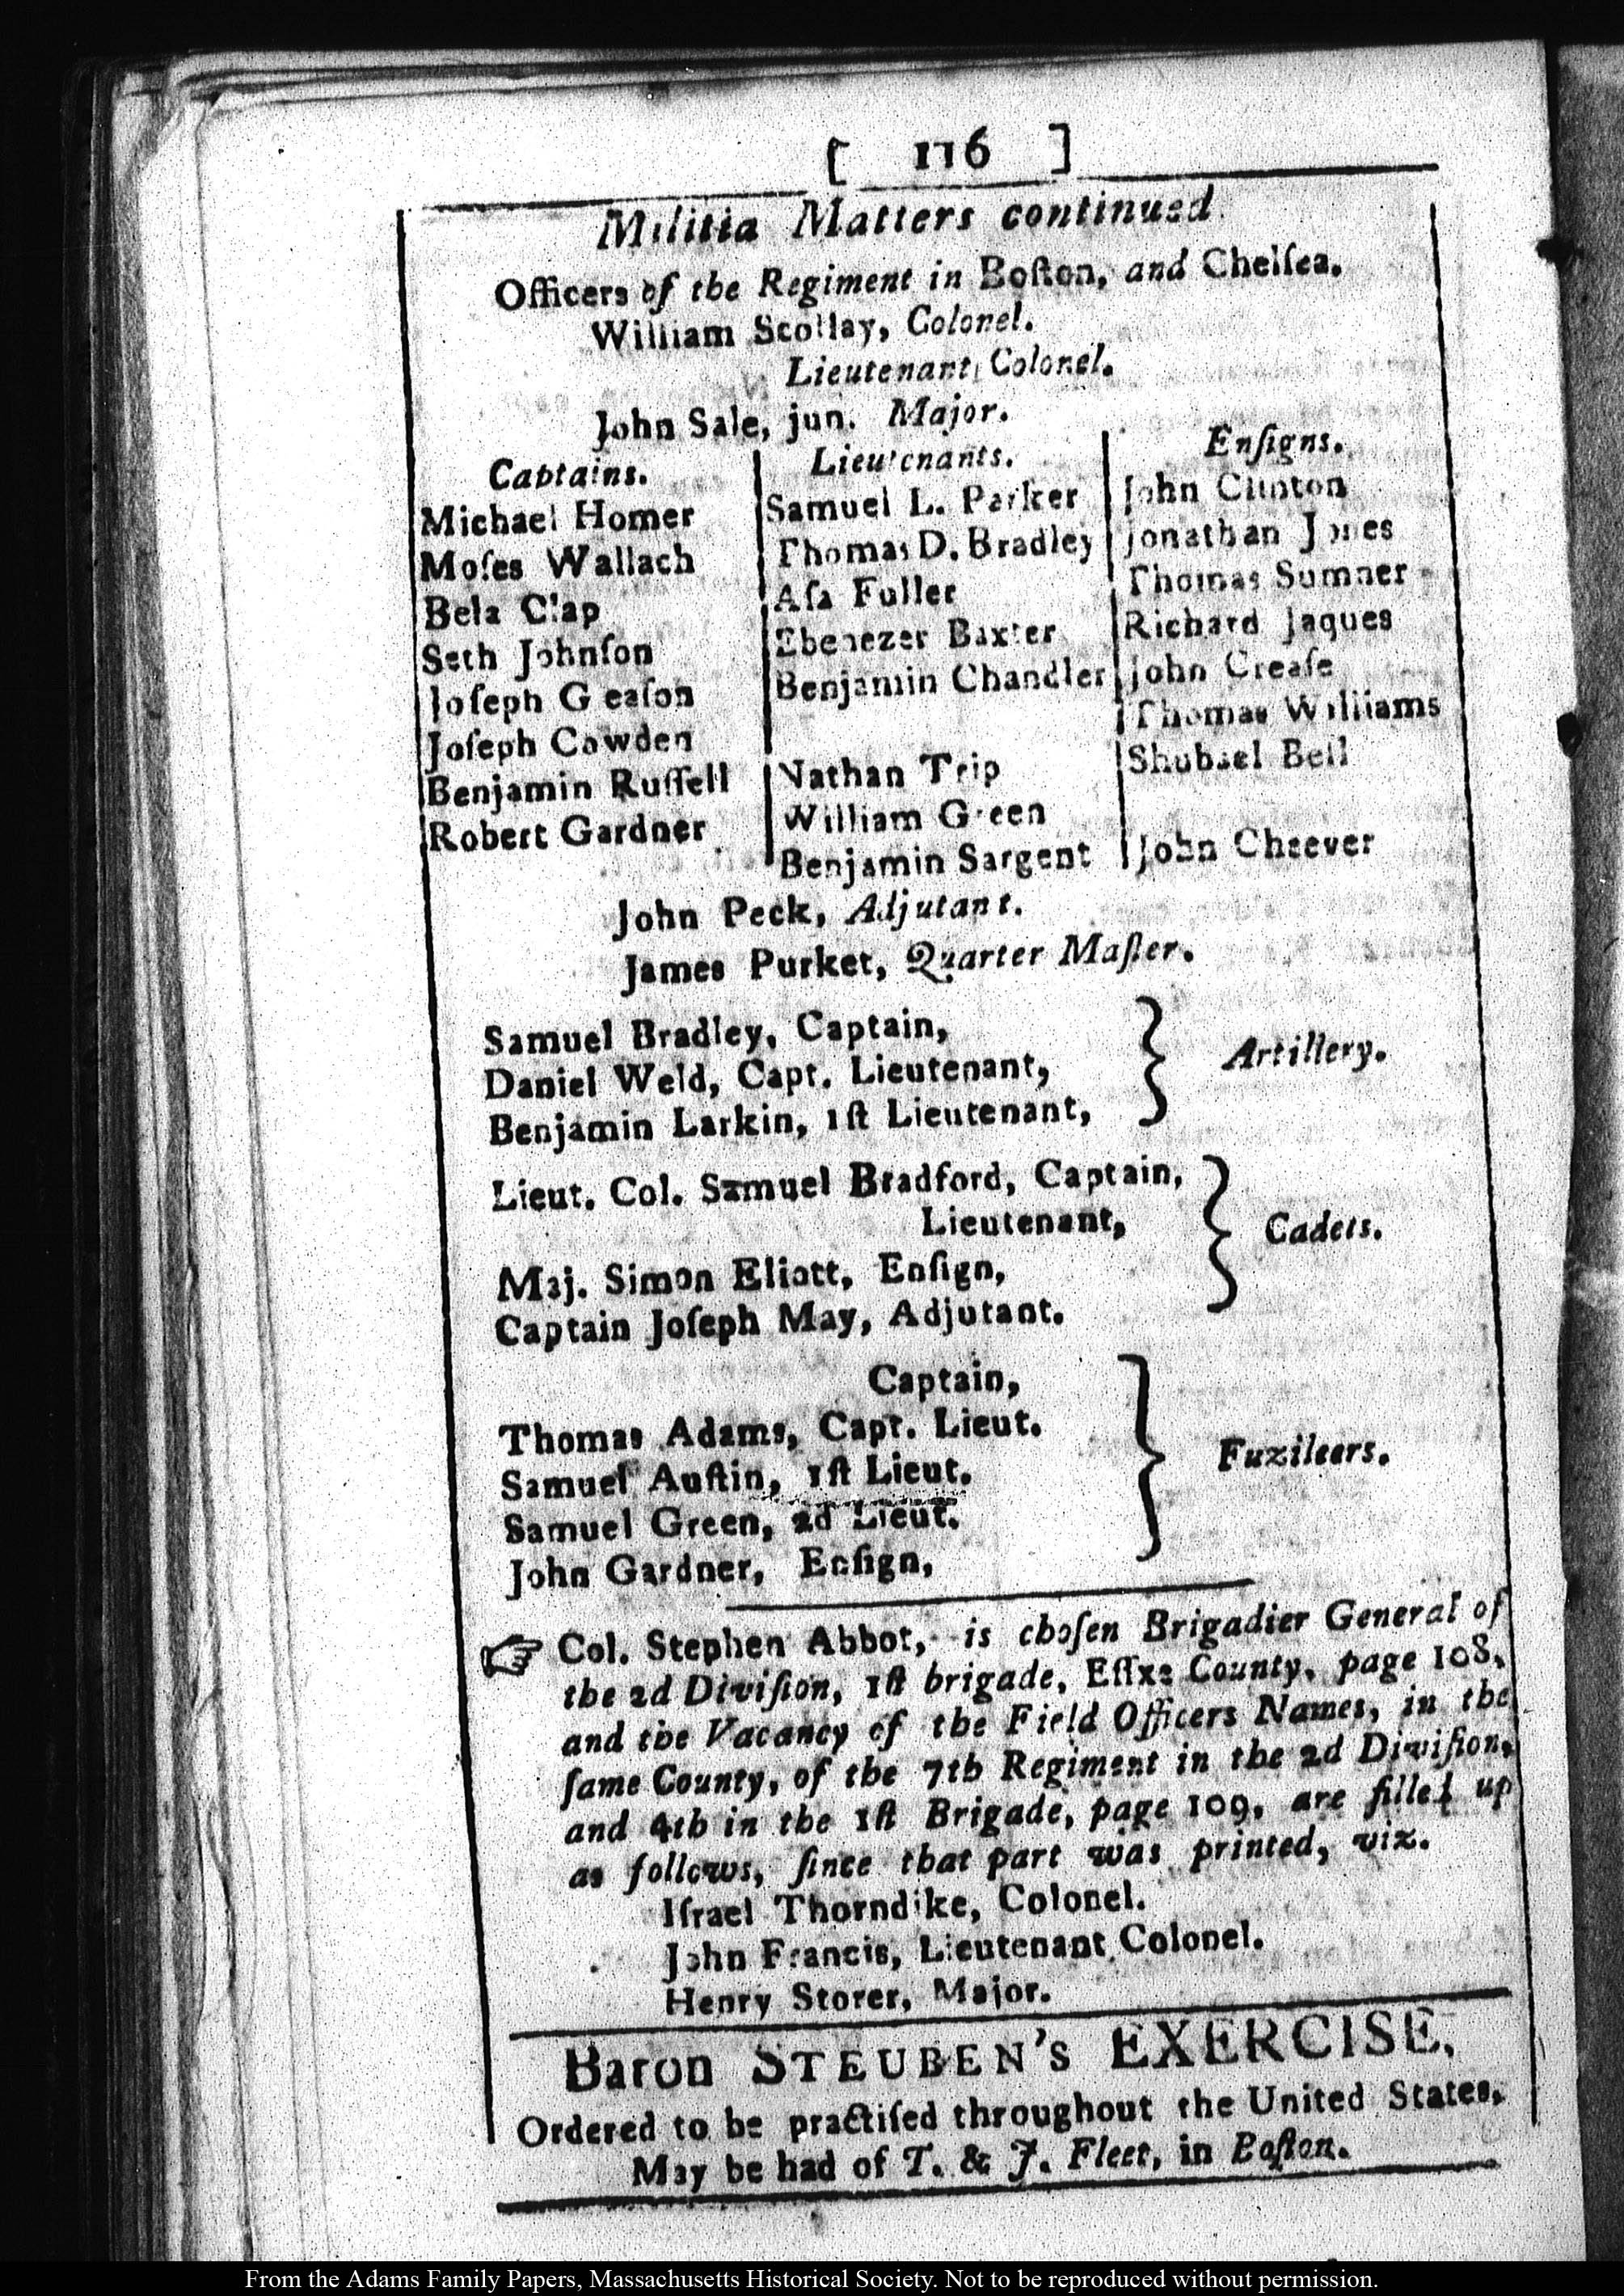 [ 116 ]
Militia Matters continued
Officers of the Regiment in Boſton, and Chelſea.
William Scollay, Colonel.
Lieutenant Colonel.
John Sale, jun. Major.
Captains. Lieutenants. Enſigns.
Michael Homer Samuel L. Parker John Clinton
Moſes Wallach Thomas D. Bradley Jonathan Jones
Bela Clap Aſa Fuller Thomas Sumner
Seth Johnſon Ebenezer Baxter Richard Jaques
Joſeph Gleaſon Benjamin Chandler John Creaſe
Joſeph Cowden Thomas Williams
Benjamin Ruſſell Nathan Trip Shubael Bell
Robert Gardner William Green
Benjamin Sargent John Cheever
John Peck, Adjutant.
James Purket, Quarter Maſter.
Samuel Bradley, Captain,
Daniel Weld, Capt. Lieutenant, } Artillery.
Benjamin Larkin, 1ſt Lieutenant,
Lieut. Col. Samuel Bradford, Captain,
Lieutenant, } Cadets.
Maj. Simon Eliott, Enſign,
Captain Joſeph May, Adjutant.
Captain,
Thomas Adams, Capt. Lieut.
Samuel Auſtin, 1ſt Lieut. } Fuzileers.
Samuel Green, 2d Lieut.
John Gardner, Enſign,
☞ Col. Stephen Abbot, is choſen Brigadier General of
the 2d Diviſion, 1ſt brigade, Eſſxe County, page 108,
and the Vacancy of the Field Officers Names, in the
ſame County, of the 7th Regiment in the 2d Diviſion,
and 4th in the 1ſt Brigade, page 109, are filled up
as follows, ſince that part was printed, viz.
Iſrael Thorndike, Colonel.
John Francis, Lieutenant Colonel.
Henry Storer, Major.
Baron STEUBEN's EXERCISE,
Ordered to be practiſed throughout the United States,
May be had of T. & J. Fleet, in Boſton.
From the Adams Family Papers, Massachusetts Historical Society. Not to be reproduced without permission.